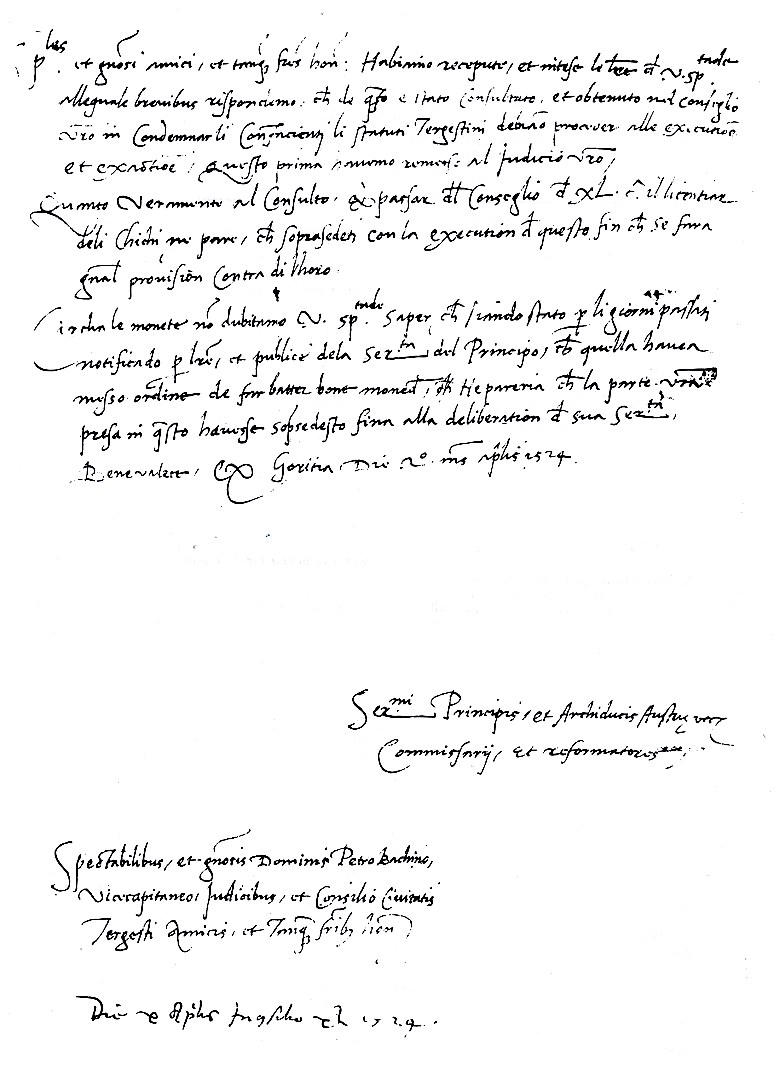 Sp.les et gnosi amici, et tanq. frès hon: Habiamo receputo, et inteso le lre d V. Sp.tade
allequale brevibus respondemo: ch de qsto e stato Consultato, et obtenuto nel Conseglio
vro in Condemnar li Contrafacienti li statuti Tergestini debiano procever alle execution
et exaction, Questo prima havemo remesso al Judicio vro,
Quanto Veramente al Consulto, et passar dl Conseglio d XL. c. il licentiar
deli Chichi ne pare, ch soprasedeti con la execution d questo fin ch se fara
gnal provision contra di lhoro.
Circha le monete no dubitamo V. Sp.tade Saper, ch siando stato p li giorni passati
notificado p lre, et publice dela Ser.ta del Principo, ch quella havea
messo ordine de far batter bone moned, ch ne pareria ch la parte
presa in qsto havesse sopsedesto fina alla deliberation d sua Ser.ta,
Bene valete, Ex Goritia Die 2o. mns Aplis 1524.
Ser.mi Principis, et Archiducis Austrie
Commissarij, et reformatores
Spectabilibus, et gnosis Dominis Petro Bachino,
Vicecapitaneo, Judicibus, et Consilio Civitatis
Tergesti Amicis, et Tanq frib hon
Die x Aplis In 9silio xl 1524.